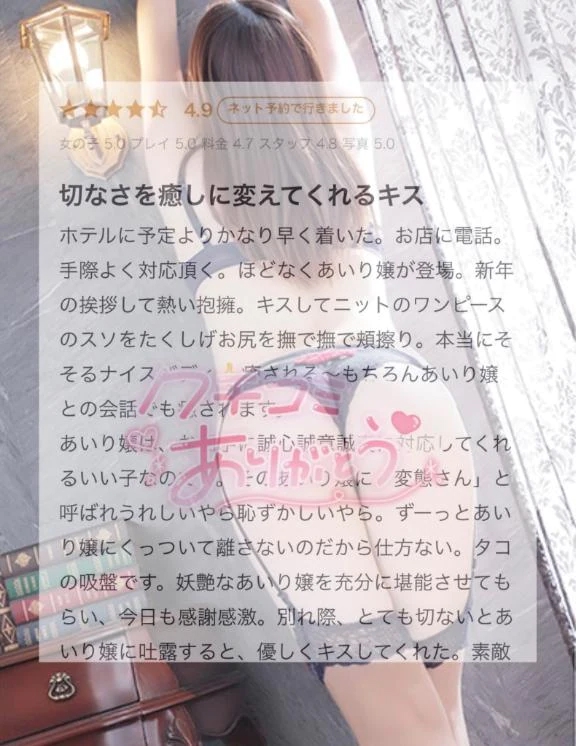 4.9 ネット予約で行きました
女の子 5.0 プレイ 5.0 料金 4.7 スタッフ 4.8 写真 5.0
切なさを癒しに変えてくれるキス
ホテルに予定よりかなり早く着いた。お店に電話。
手際よく対応頂く。ほどなくあいり嬢が登場。新年
の挨拶して熱い抱擁。キスしてニットのワンピース
のスソをたくしげお尻を撫で撫で頬擦り。本当にそ
そるナイス 癒される〜もちろんあいり嬢
との会話でも癒されます。
クチコミ
あいり嬢は、 に誠心誠意 対応してくれ
ありがとう
るいい子なの 嬢に「変態さん」と
呼ばれうれしいやら恥ずかしいやら。ずーっとあい
り嬢にくっついて離さないのだから仕方ない。タコ
の吸盤です。妖艶なあいり嬢を充分に堪能させても
らい、今日も感謝感激。別れ際、とても切ないとあ
いり嬢に吐露すると、優しくキスしてくれた。素敵